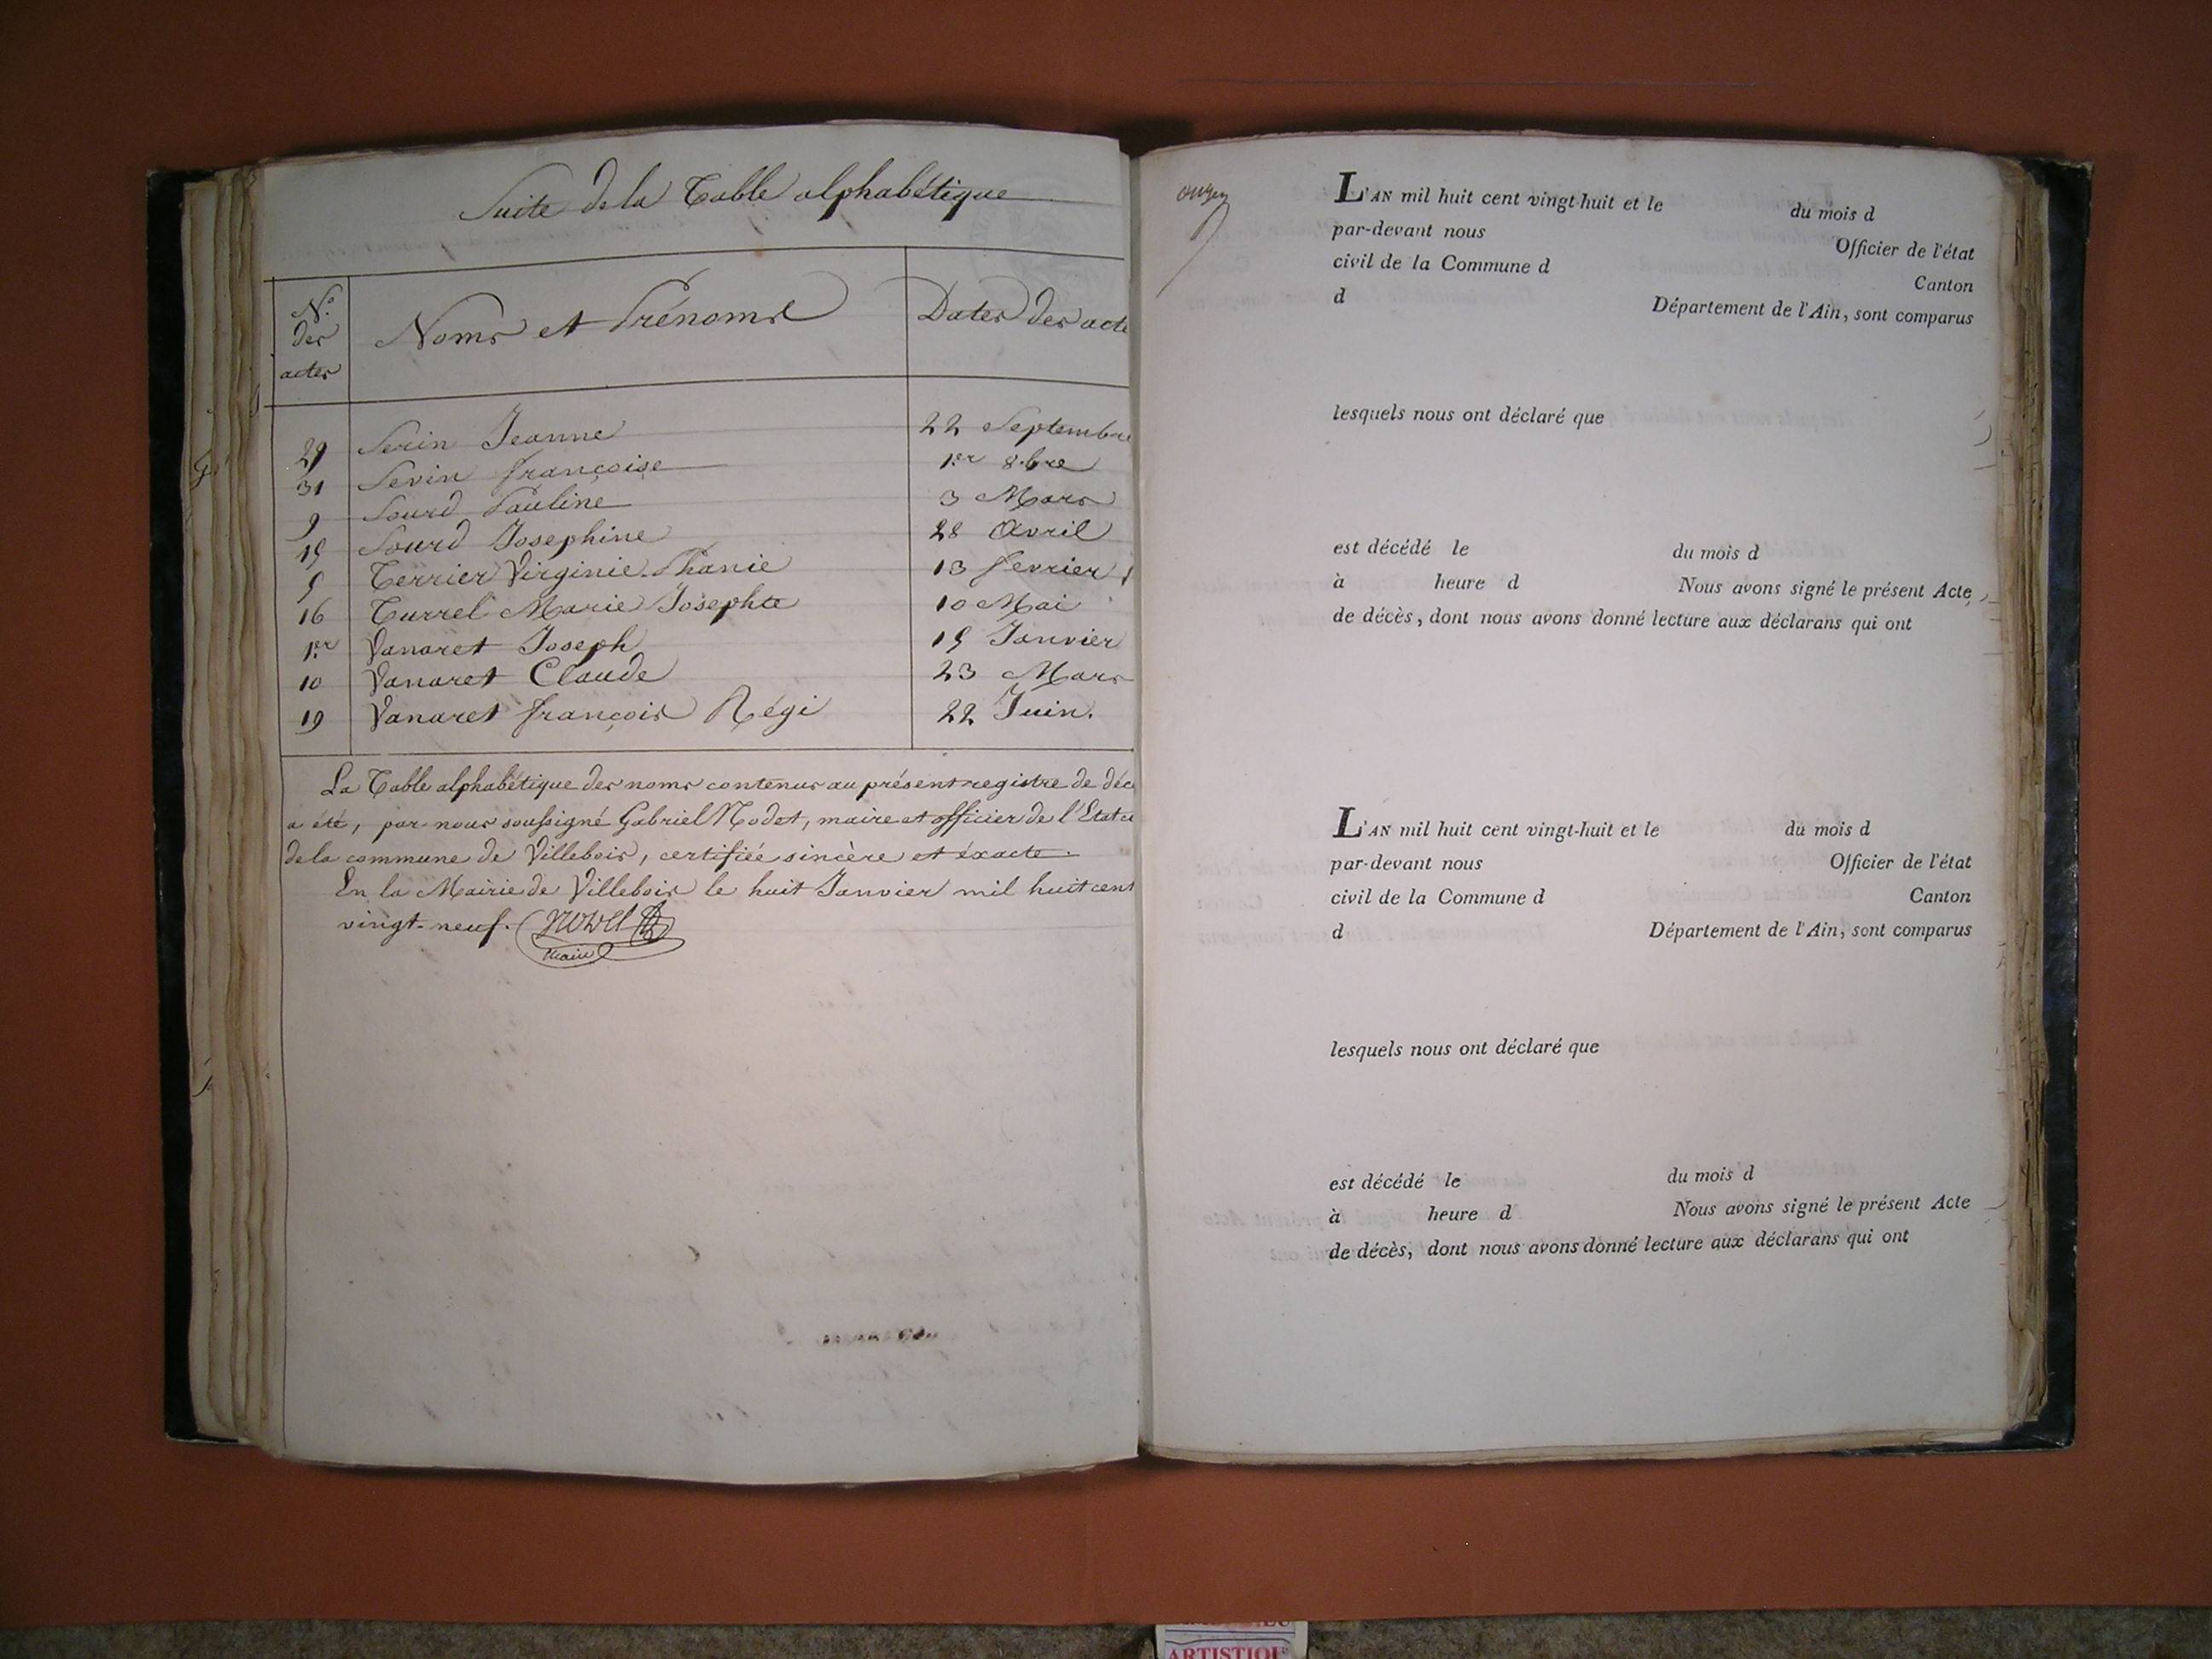 Suite de la Table alphabétique
N.º des actes
Noms et Prénoms
Dates des acte
29 Serin Jeanne 22 Septembre
31 Sevin françoise 1.er 8.bre
9 Sourd Pauline 3 Mars
15 Sourd Josephine 28 Avril
5 Terrier Virginie Phanie 13 fevrier
16 Turrel Marie Josephte 10 Mai
1.er Vanaret Joseph 15 Janvier
10 Vanaret Claude 23 Mars
19 Vanaret françois Régi 22 Juin.
La Table alphabétique des noms contenus au présent registre de déc
a été, par nous soussigné Gabriel Nodet, maire et officier de l'Etat ci
de la commune de Villebois, certifiée sincère et éxacte.
En la Mairie de Villebois le huit Janvier mil huit cent
vingt-neuf.
maire
onzen
L'AN mil huit cent vingt-huit et le du mois d
par-devant nous Officier de l'état
civil de la Commune d Canton
d Département de l'Ain, sont comparus
lesquels nous ont déclaré que
est décédé le du mois d
à heure d Nous avons signé le présent Acte
de décès, dont nous avons donné lecture aux déclarans qui ont
L'AN mil huit cent vingt-huit et le du mois d
par-devant nous Officier de l'état
civil de la Commune d Canton
d Département de l'Ain, sont comparus
lesquels nous ont déclaré que
est décédé le du mois d
à heure d Nous avons signé le présent Acte
de décès, dont nous avons donné lecture aux déclarans qui ont
ARTISTIQU